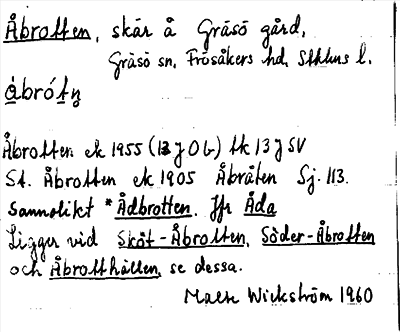 Åbrotten, skär å Gräsö gård,
Gräsö sn, Frösåkers hd, Sthlms l.
åbrótn̥
Åbrotten ek 1955 (13 J Ob) tk 13 J SV
St. Åbrotten ek 1905 Åbråten Sj. 113.
Sannolikt *Ådbrotten. Jfr Åda
Ligger vid Sköt-Åbrotten, Söder-Åbrotten
och Åbrotthällen, se dessa.
Mats Wickström 1960